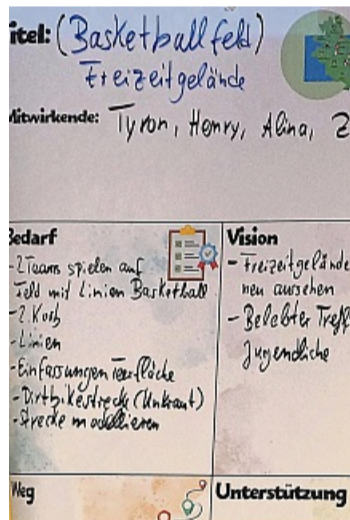 itel: (Basketballfeld)
Freizeitgelände
Mitwirkende: Tyron, Henry, Alina,
Bedarf
- 2 Teams spielen auf
Feld mit Linien Basketball
- 2 Korb
- Linien
- Einfassungen Teerfläche
- Dirtbikestrecke (Unkraut)
- Strecke modellieren
Vision
- Freizeitgelände
neu aussehen
- Belebter Treff
Jugendliche
Weg
Unterstützung